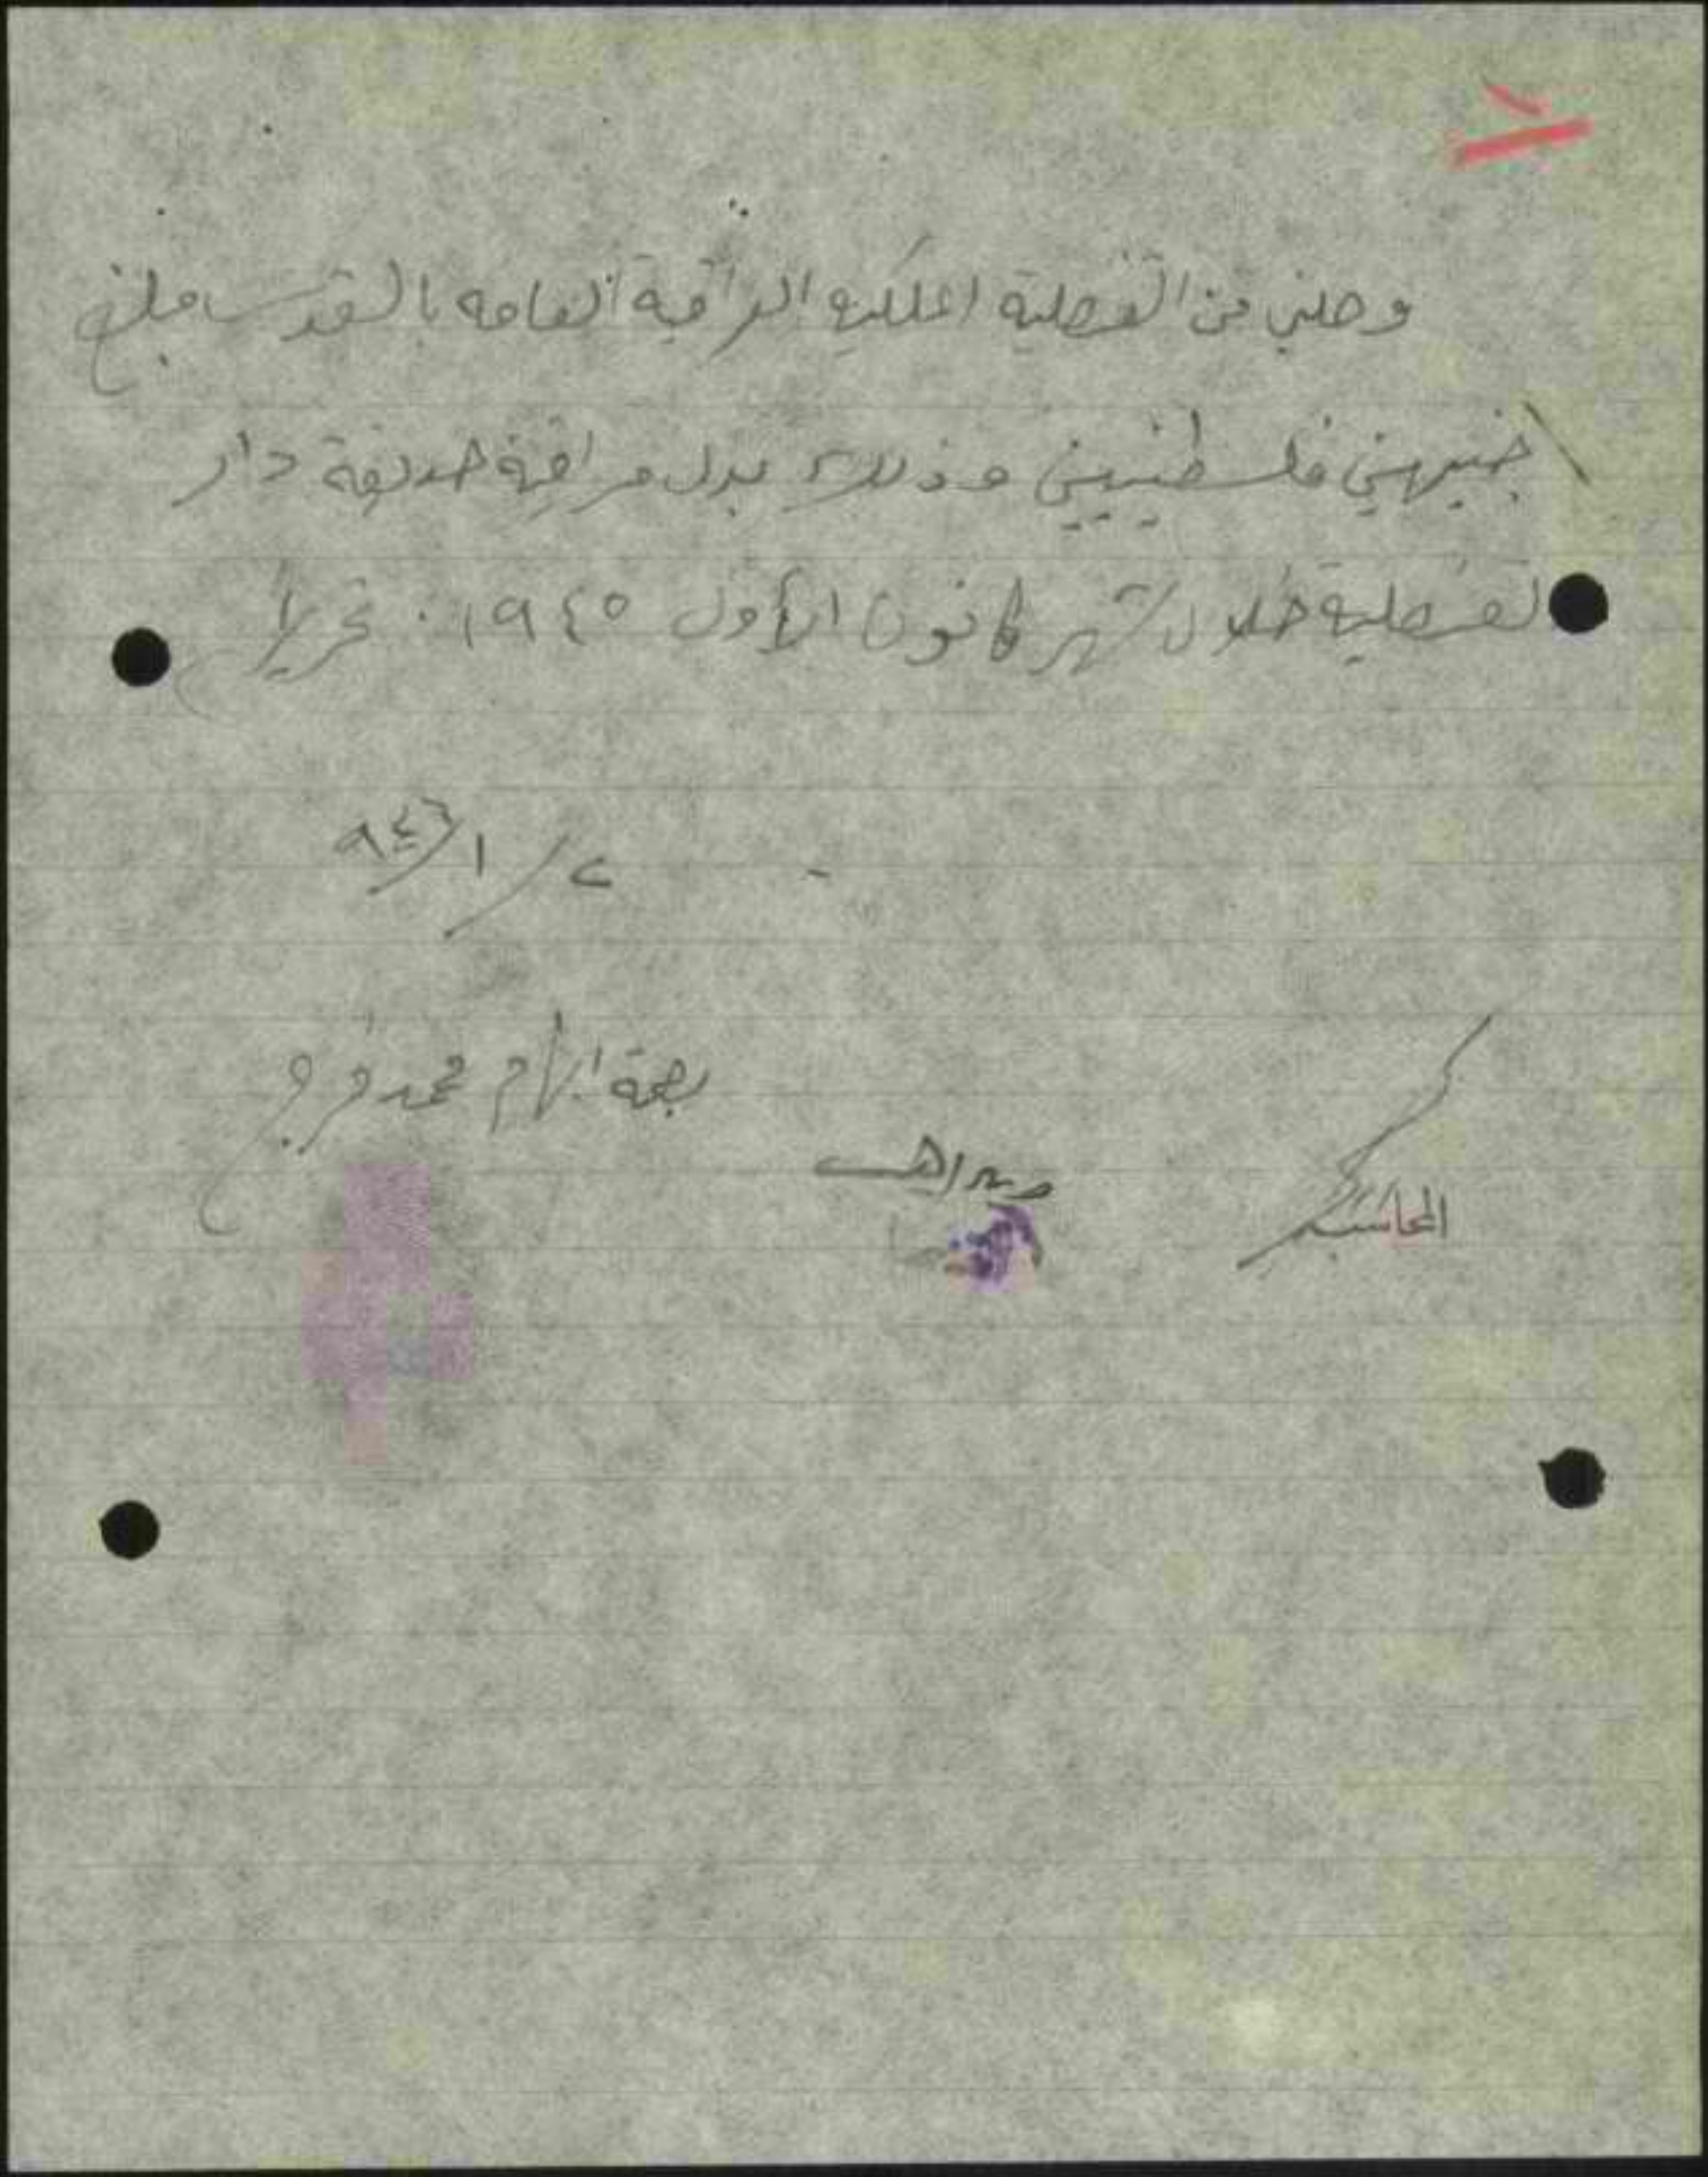 وصلني من القنصلية الملكية العراقية العامه بالقدس مبلغ
جنيهين فلسطينيين وذلك بدل مراقبة حديقة دار
القنصلية خلال شهر كانون الأول ١٩٤٥ . تحريرا
٢/١/٩٤٦
بصمة ابهام محمد فرج
المحاسب